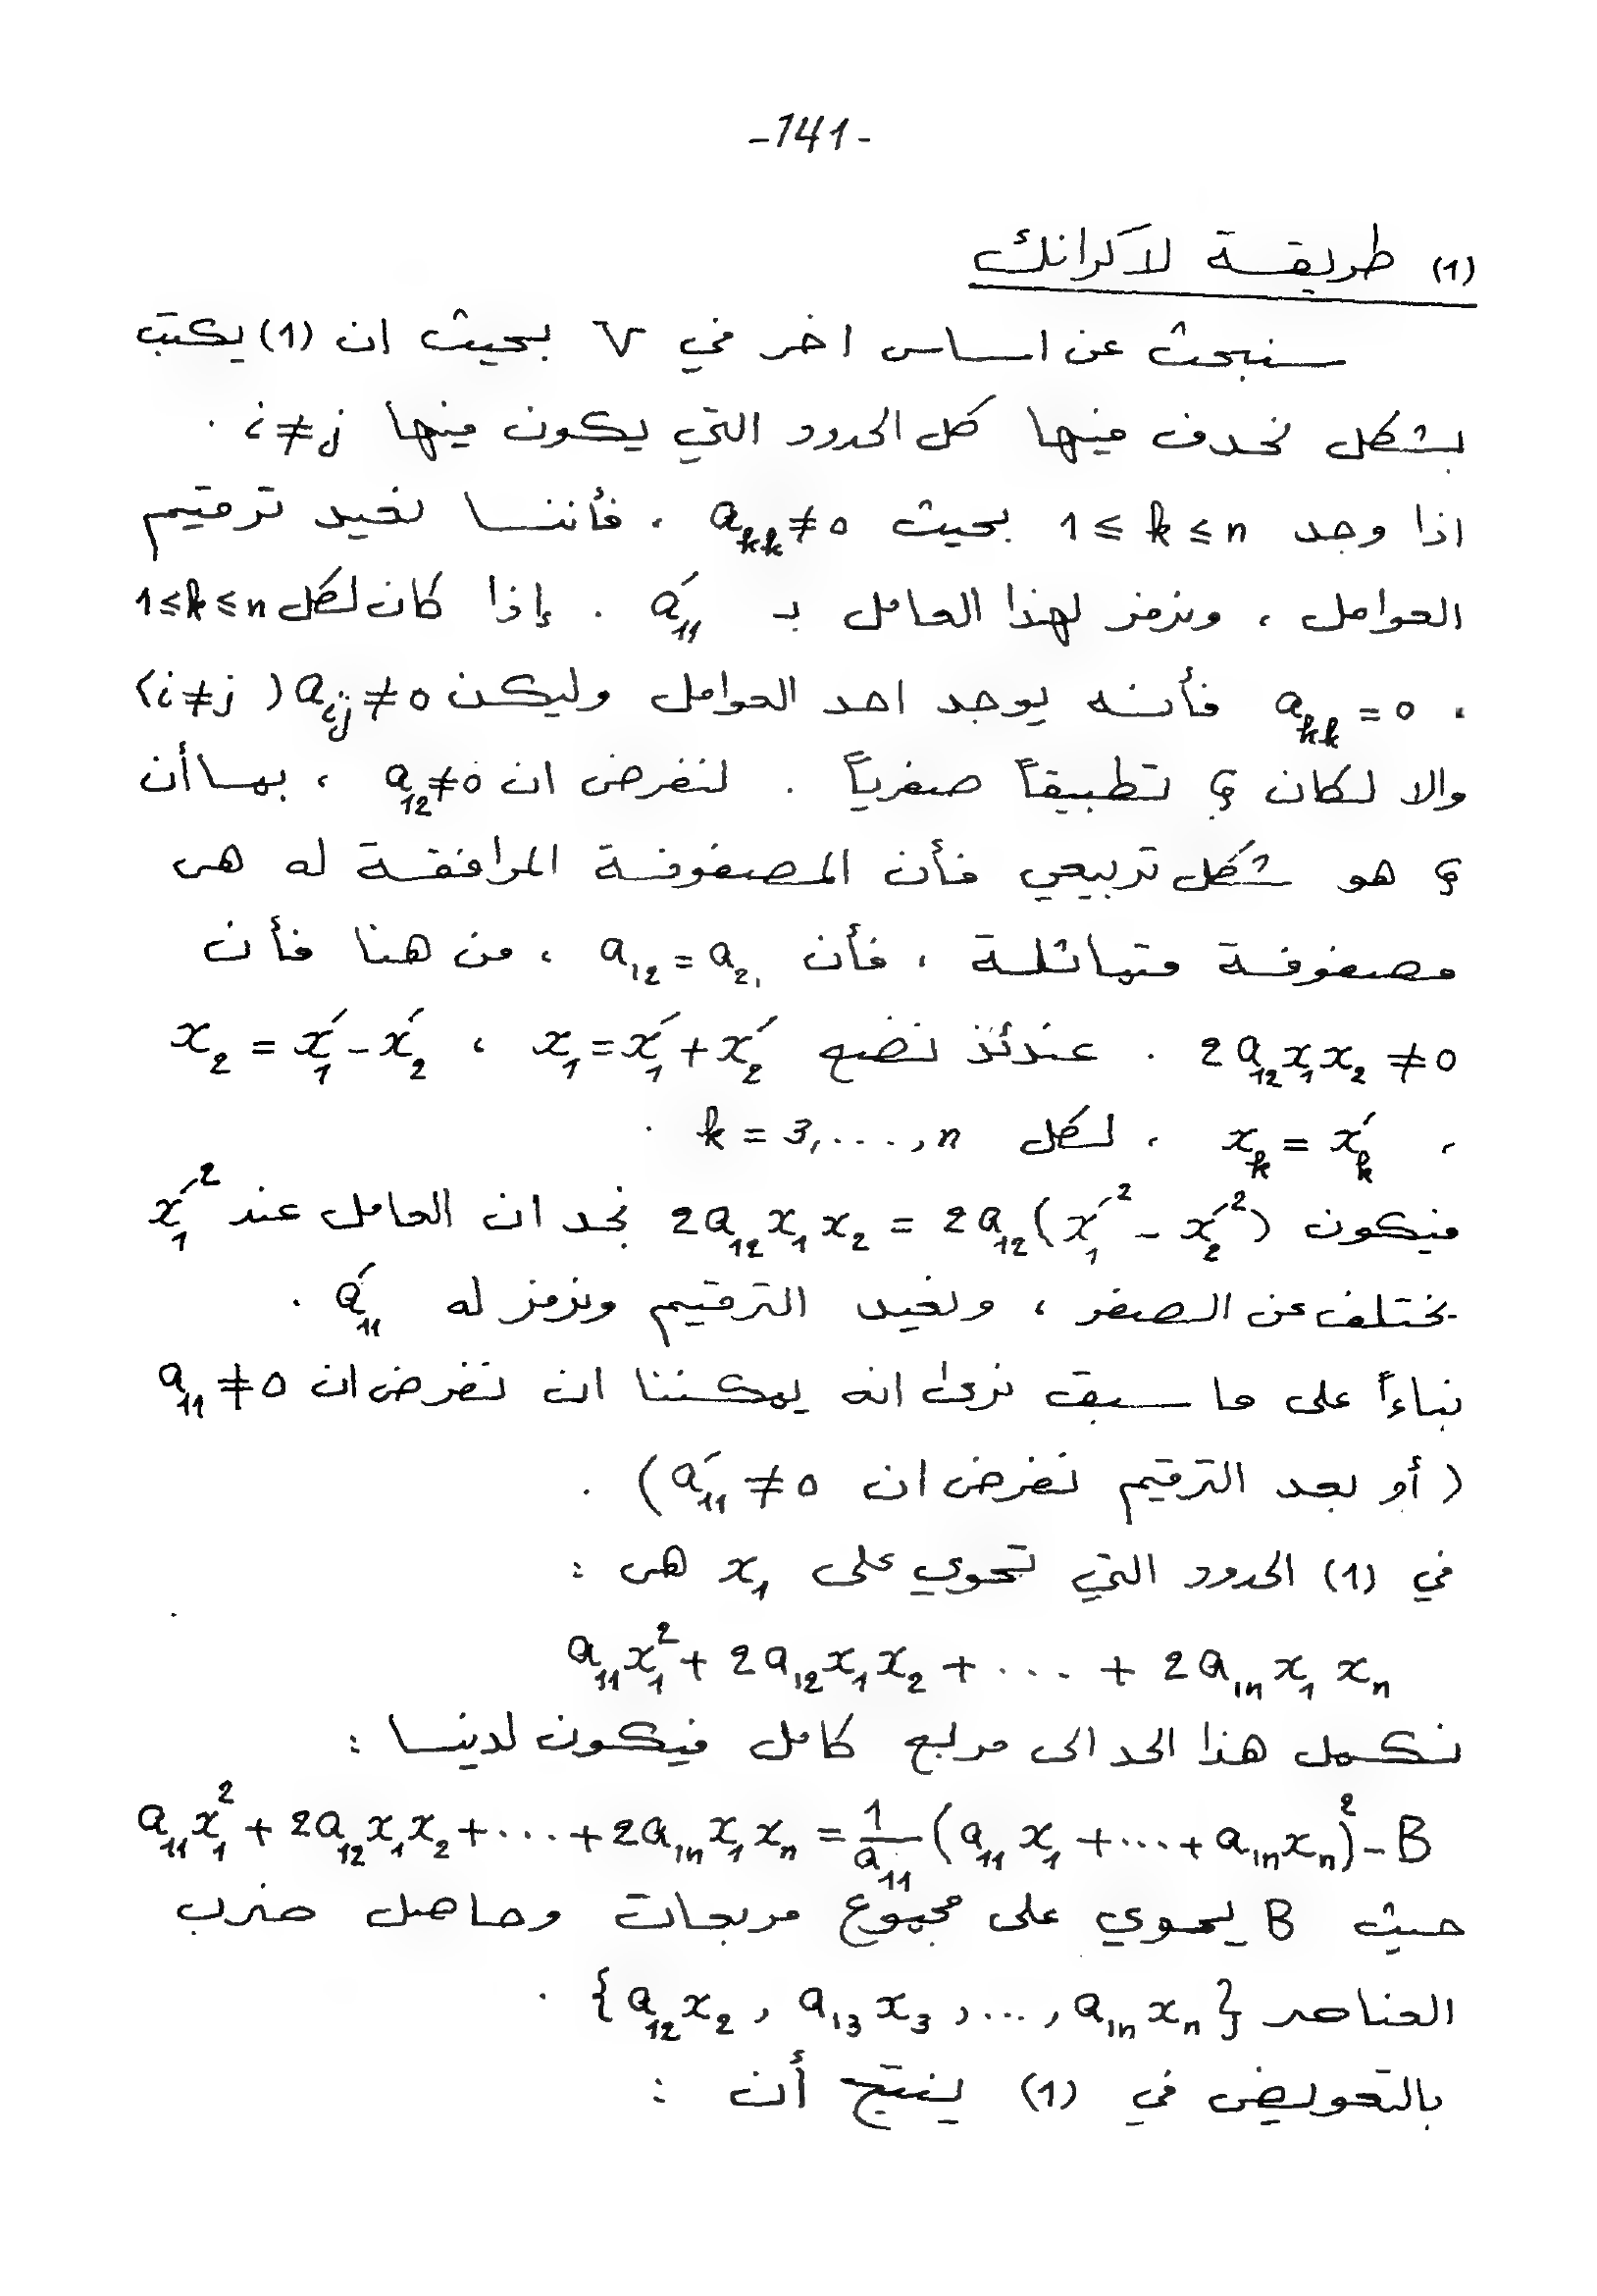 -141-
(1) طريقة لاكرانك
سنبحث عن اساس اخر في V بحيث ان (1) يكتب
بشكل نحدف فيها كل الحدود التي يكون فيها i≠j .
اذا وجد 1 ≤ k ≤ n بحيث a_kk ≠ 0 ، فأننا نعيد ترقيم
العوامل ، ونرمز لهذا العامل بـ a'_11 . إذا كان لكل 1≤k≤n
، a_kk = 0 فأنه يوجد احد العوامل وليكن a_ij ≠ 0 (i≠j)
والا لكان φ تطبيقاً صفرياً . لنفرض ان a_12 ≠ 0 ، بما أن
φ هو شكل تربيعي فأن المصفوفة المرافقة له هى
مصفوفة متماثلة ، فأن a_12 = a_21 ، من هنا فأن
2a_12 x_1 x_2 ≠ 0 . عندئذ نضع x_1 = x'_1 + x'_2 ، x_2 = x'_1 - x'_2
، x_k = x'_k ، لكل k = 3,....,n .
فيكون 2a_12 x_1 x_2 = 2a_12 (x'_1^2 - x'_2^2) نجد ان العامل عند x'_1^2
يختلف عن الصفر ، ونعيد الترقيم ونرمز له a'_11 .
بناءاً على ما سبق نرى انه يمكننا ان نفرض ان a_11 ≠ 0
(أو بعد الترقيم نفرض ان a'_11 ≠ 0) .
في (1) الحدود التي تحوي على x_1 هى :
a_11 x_1^2 + 2a_12 x_1 x_2 + .... + 2a_1n x_1 x_n
نكمل هذا الحد الى مربع كامل فيكون لدينا :
a_11 x_1^2 + 2a_12 x_1 x_2 + ... + 2a_1n x_1 x_n = 1/a_11 (a_11 x_1 + ... + a_1n x_n)^2 - B
حيث B يحوي على مجموع مربعات وحاصل ضرب
العناصر {a_12 x_2 , a_13 x_3 , ... , a_1n x_n} .
بالتعويض في (1) ينتج أن :